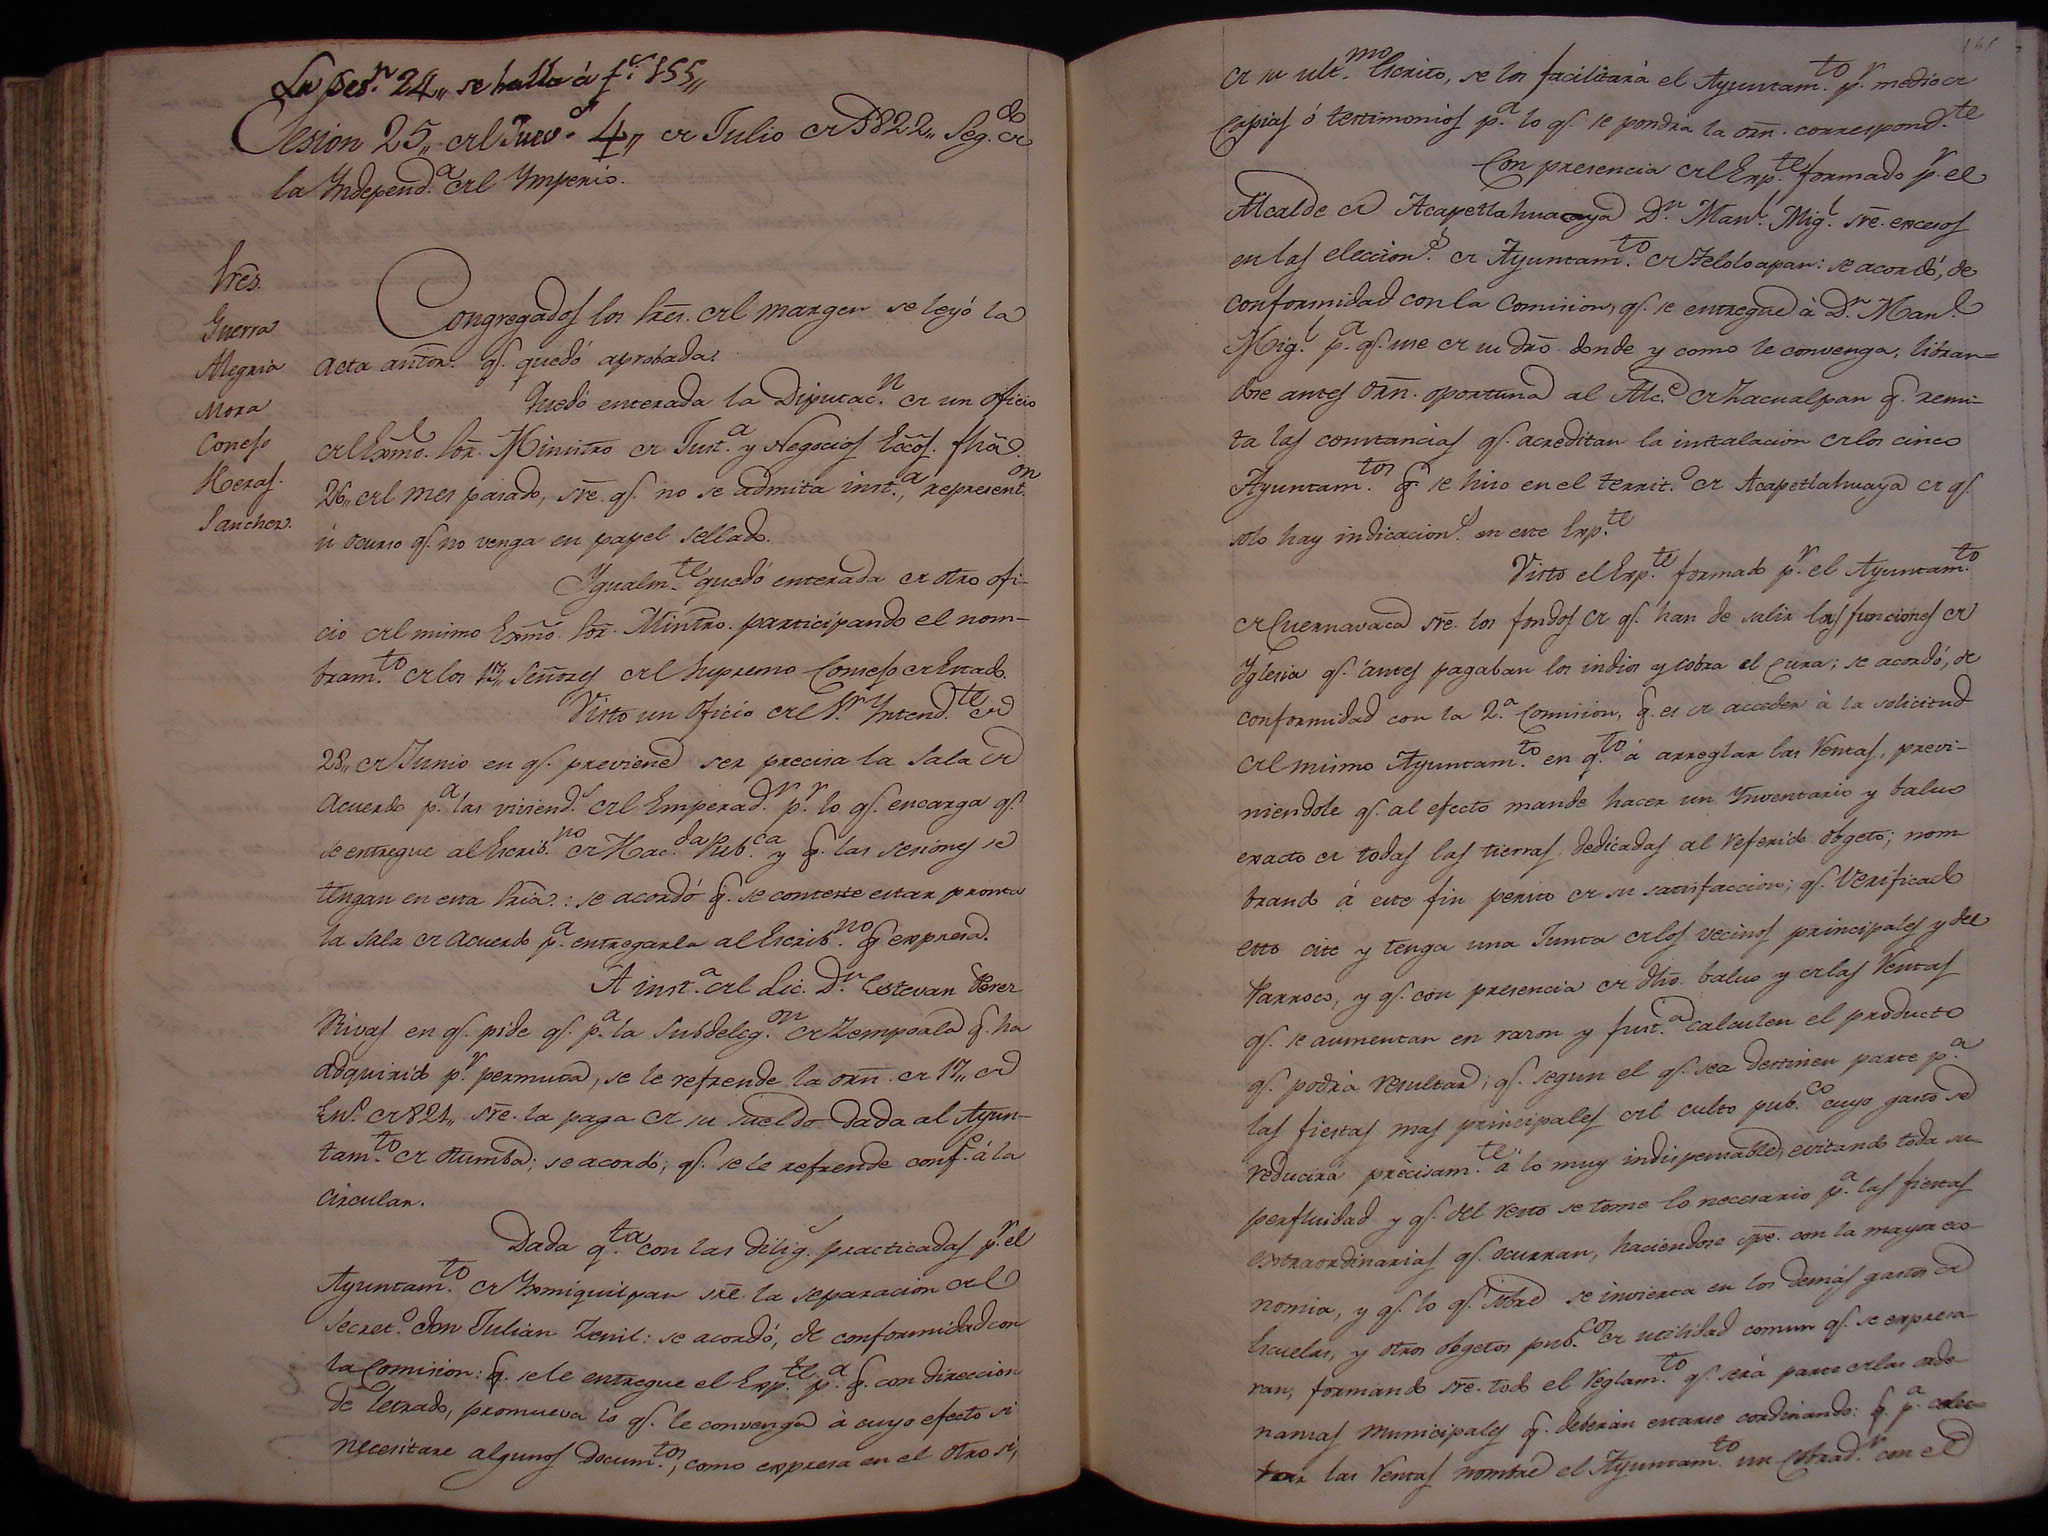 La Ses.n 24,, se halla á f.s 155,,
Sesion 25,, del Juev.s 4,, de Julio de 1822,, Seg.do de
la Independ.a del Ymperio.
Sres.
Guerra
Alegria
Mora
Conejo
Heras.
Sanchez.
Congregados los Sres. del margen se leyó la
Acta anterr. qe. quedó aprobada.
Quedó enterada la Diputac.n de un oficio
del Exmo. Sor. Ministro de Just.a y Negocios Eccos. fha.
26,, del mes pasado, sre. qe. no se admita inst.a, represent.on
ú ocurso qe. no venga en papel sellado.
Ygualm.te quedó enterada de otro ofi-
cio del mismo Exmo. Sor. Mintro. participando el nom-
bram.to de los 13,, Señores del Supremo Consejo de Estado.
Visto un Oficio del S.r Yntend.te de
28,, de Junio en qe. previene ser precisa la Sala de
Acuerdo p.a las viviend.s del Emperad.r p.r lo qe. encarga qe.
se entregue al Escrib.no de Hac.da Pub.ca y q. las sesiones se
tengan en esta Sria.: se acordó q. se conteste estar pronta
la Sala de Acuerdo p.a entregarla al Escrib.no q expresa.
A inst.a del Lic. D.n Estevan Perez
Rivas en qe. pide qe. p.a la Subdeleg.on de Zempoala q. ha
adquirido p.r permuta, se le refrende la orn. de 17,, de
En.o de 821,, sre. la paga de su sueldo dada al Ayun-
tam.to de Otumba; se acordó; qe. se le refrende conf.e á la
circular.
Dada q.ta con las dilig.s practicadas p.r el
Ayuntam.to de Yxmiquilpan sre. la separacion del
Secret.o Don Julian Zenil: se acordó, de conformidad con
la Comision: q. se le entregue el Exp.te p.a q. con direccion
de Letrado, promueva lo qe. le convenga á cuyo efecto si
necesitare algunos docum.tos, como expresa en el otro sí,
de su ult.mo Escrito, se los facilitará el Ayuntam.to p.r medio de
Copias ó testimonios p.a lo qe. se pondrá la orn. correspond.te
Con presencia del Exp.te formado p.r el
Alcalde de Acapetlahuaya D.n Man.l Mig.l sre. excesos
en las eleccion.s de Ayuntam.to de Teloloapan: se acordó, de
conformidad con la Comision, qe. se entregue á D.n Man.l
Mig.l p.a qe. use de su dro. donde y como le convenga, libran-
dose antes Orn. oportuna al Alc.e de Zacualpan q. remi-
ta las constancias qe. acreditan la instalacion de los cinco
Ayuntam.tos q. se hizo en el territ.o de Acapetlahuaya de qe.
solo hay indicacion.s en este Exp.te
Visto el Exp.te formado p.r el Ayuntam.to
de Cuernavaca sre. los fondos de qe. han de salir las funciones de
Yglesia qe. antes pagaban los indios y cobra el Cura; se acordó, de
conformidad con la 2.a Comision, q. es de acceder á la solicitud
del mismo Ayuntam.to en q.to á arreglar las Ventas, previ-
niendole qe. al efecto mande hacer un Ynventario y baluo
exacto de todas las tierras dedicadas al referido obgeto; nom
brando á este fin perito de su satisfaccion; qe. verificado
esto cite y tenga una Junta de los vecinos principales y del
Parroco, y qe. con presencia de dho. baluo y de las Ventas
qe. se aumentan en razon y just.a calculen el producto
qe. podrá resultar; qe. segun el qe. sea destinen parte p.a
las fiestas mas principales del culto pub.co cuyo gasto se
reducirá precisam.te á lo muy indispensable, evitando toda su-
perfluidad y qe. del resto se tome lo necesario p.a las fiestas
extraordinarias qe. ocurran, haciendose spe. con la mayor eco
nomia, y qe. lo qe. sobre se invierta en los demás gastos de
Escuelas, y otros obgetos pub.cos de utilidad comun qe. se expresa-
ran, formando sre. todo el Reglam.to qe. será parte de las orde-
nanzas Municipales q. deberán estarse cordinando: q. p.a colec-
tar las Ventas nombre el Ayuntam.to un Cobrad.r con el